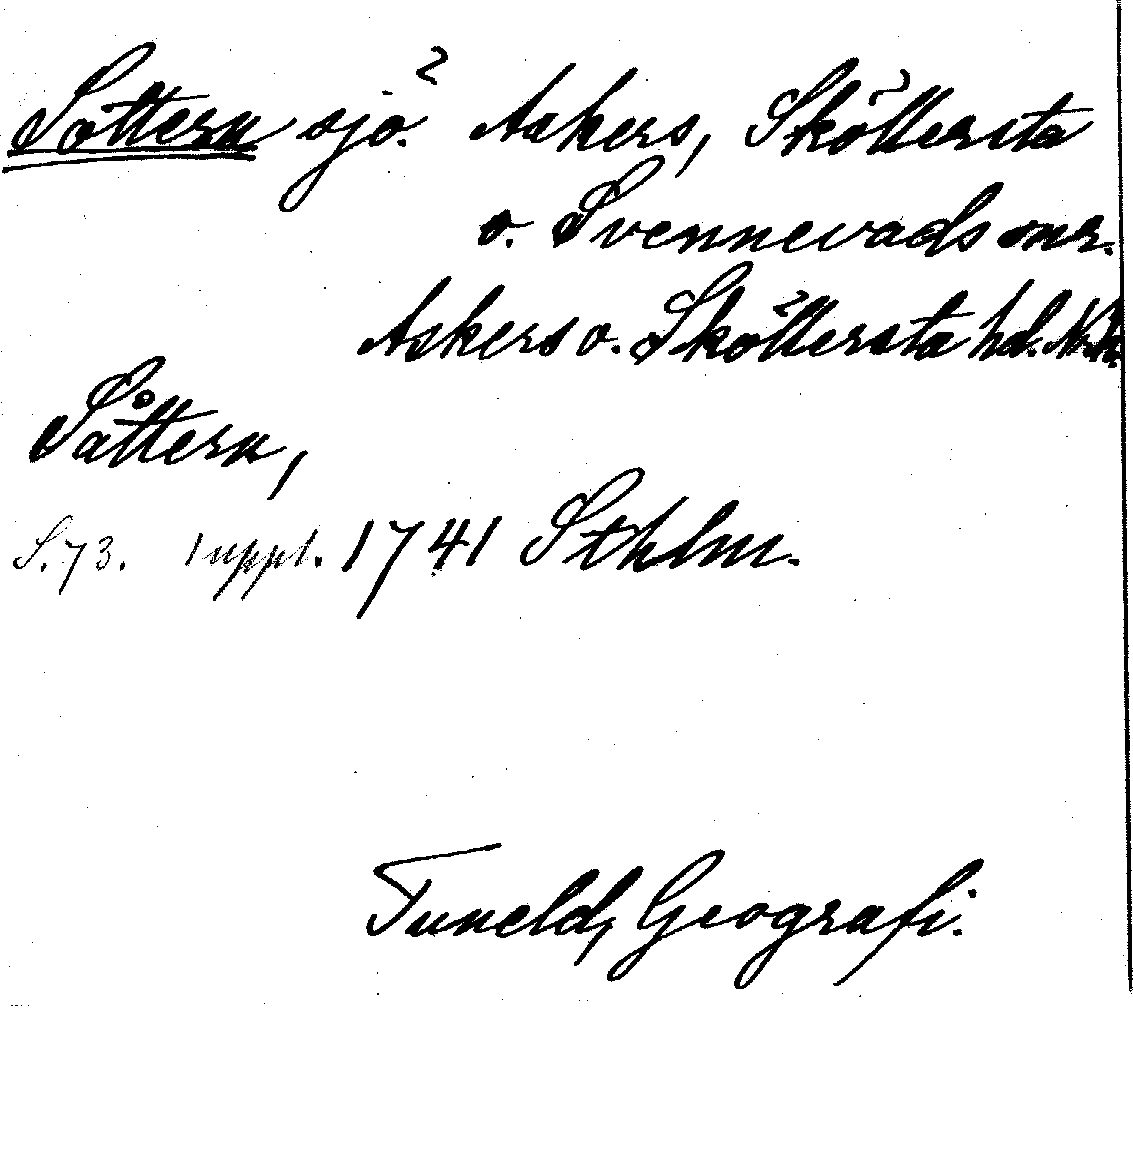 Sottern sjö. Askers, Sköllersta
o. Svennevads snr.
Askers o. Sköllersta hd. Nke.
Såttern,
S. 73. 1 uppl. 1741 Sthlm.
Tuneld, Geografi.